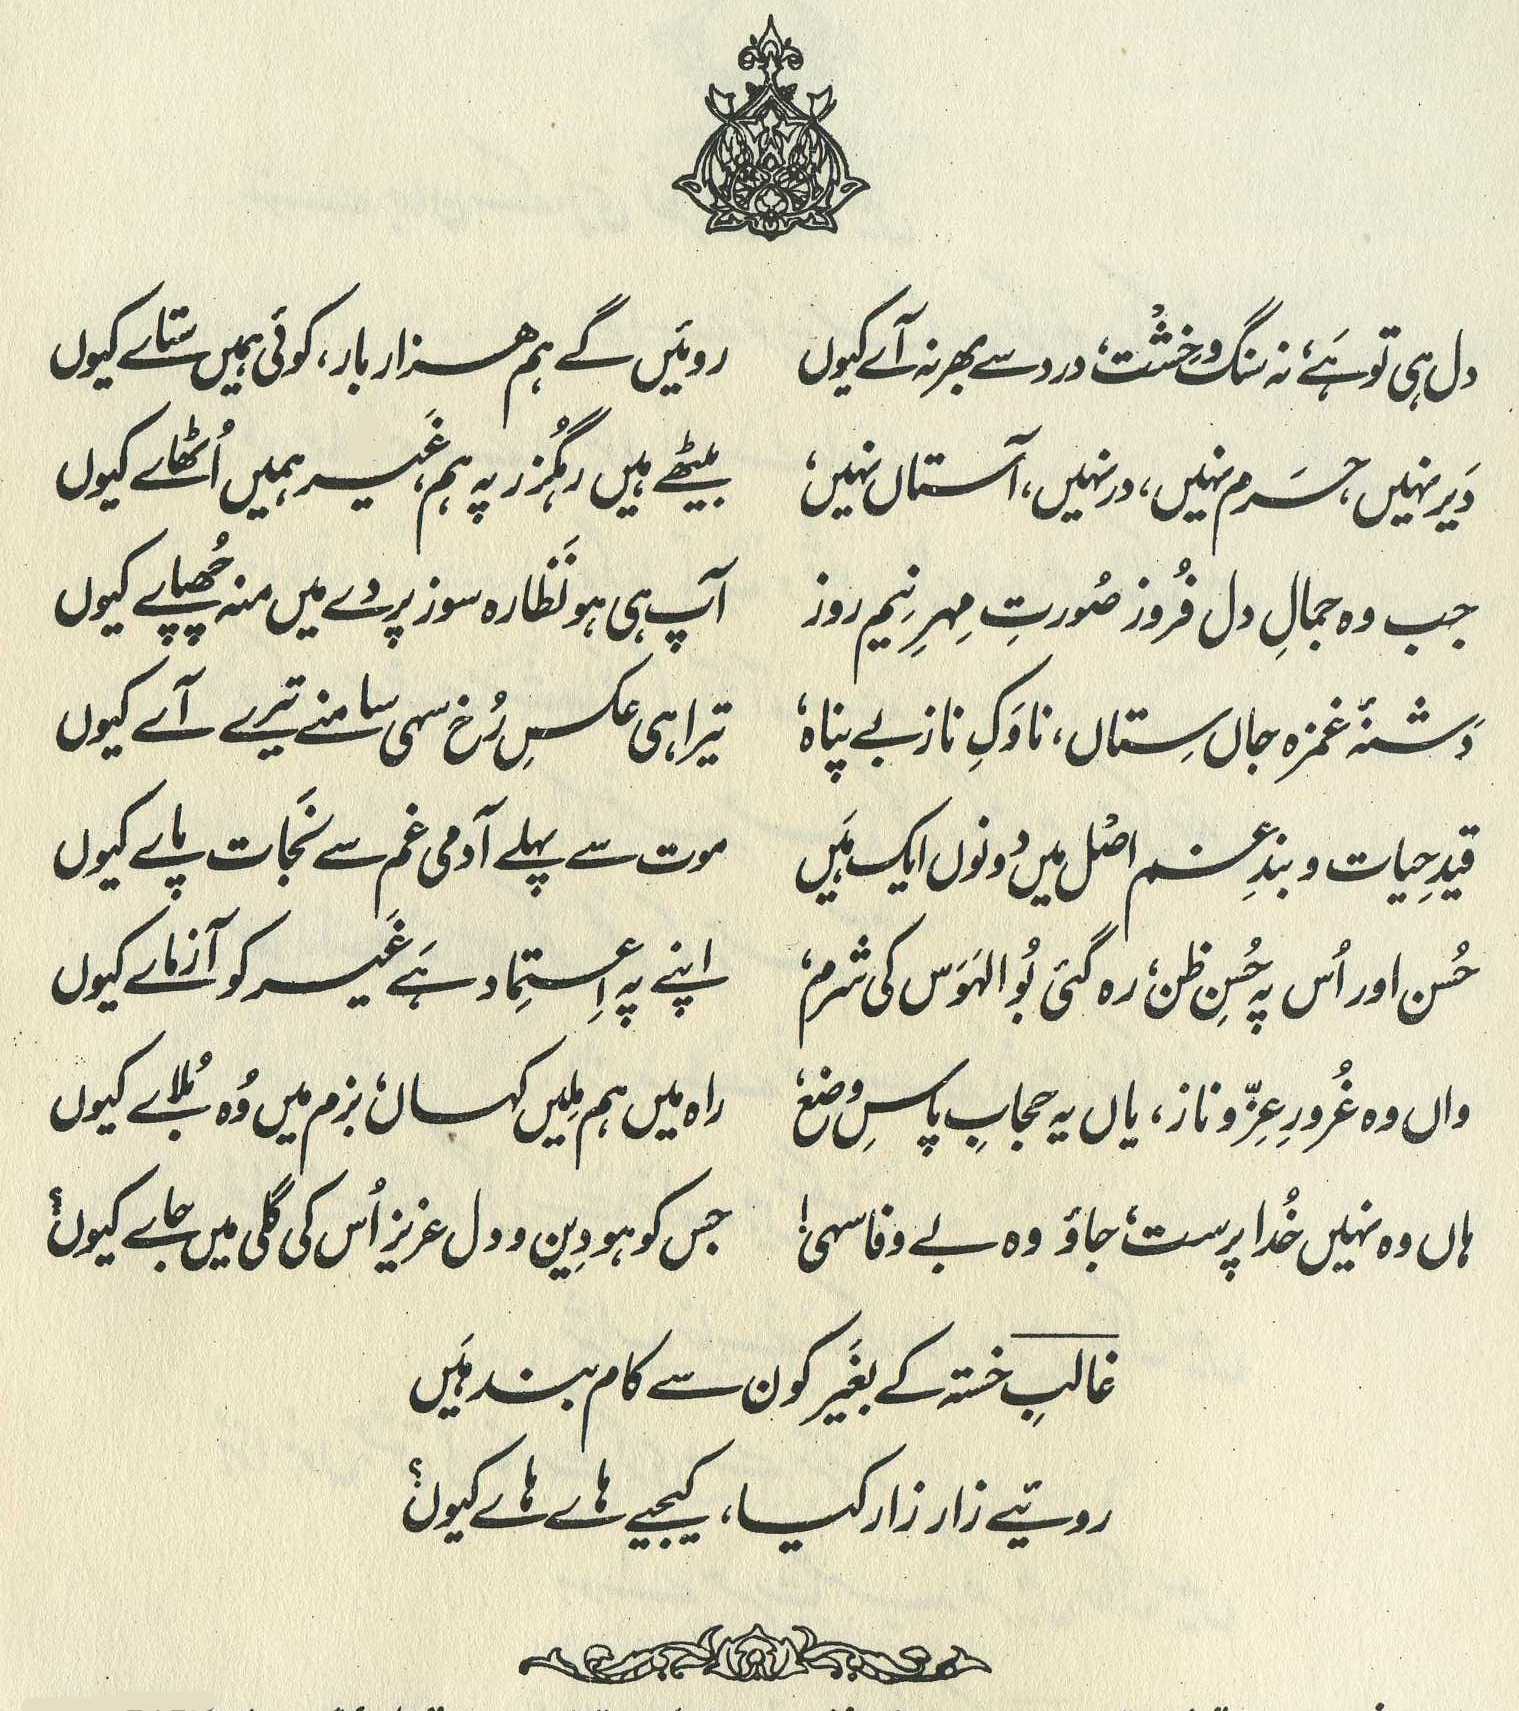 دل ہی تو ہَے، نہ سنگ و خِشْت، درد سے بھر نہ آے کیوں روئیں گے ہم ہزار بار، کوئی ہمیں ستاے کیوں
دَیر نہیں، حَرم نہیں، در نہیں، آستاں نہیں، بیٹھے ہیں رہگُزر پہ ہم، غَیر ہمیں اُٹھاے کیوں
جب وہ جمالِ دل فُروز صُورتِ مِہرِ نیم روز آپ ہی ہو نَظارہ سوز پردے میں منہ چُھپاے کیوں
دَشنۂ غمزہ جاں سِتاں، ناوَکِ ناز بے پناہ، تیرا ہی عکسِ رُخ سہی سامنے تیرے آے کیوں
قیدِ حیات و بندِ غم اصْل میں دونوں ایک ہَیں موت سے پہلے آدمی غم سے نَجات پاے کیوں
حُسن اور اُس پہ حُسنِ ظن، رہ گئی بُوالہَوَس کی شرم، اپنے پہ اِعتِماد ہَے غَیر کو آزماے کیوں
واں وہ غُرورِ عِزّ و ناز، یاں یہ حجابِ پاسِ وضع، راہ میں ہم مِلیں کہاں، بزم میں وُہ بُلاے کیوں
ہاں وہ نہیں خُدا پرست، جاؤ وہ بے وفا سہی! جس کو ہو دِین و دل عزیز اُس کی گلی میں جاے کیوں؟
غالبِ خستہ کے بغَیر کون سے کام بند ہَیں
روئیے زار زار کیا، کیجیے ہاے ہاے کیوں؟